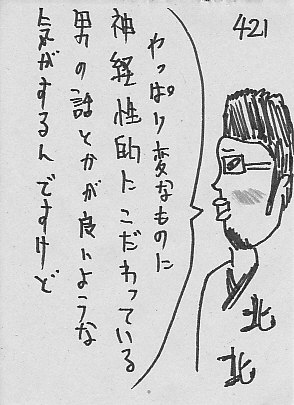 421
やっぱり変なものに
神経性的にこだわっている
男の話とかが良いような
気がするんですけど
北
北